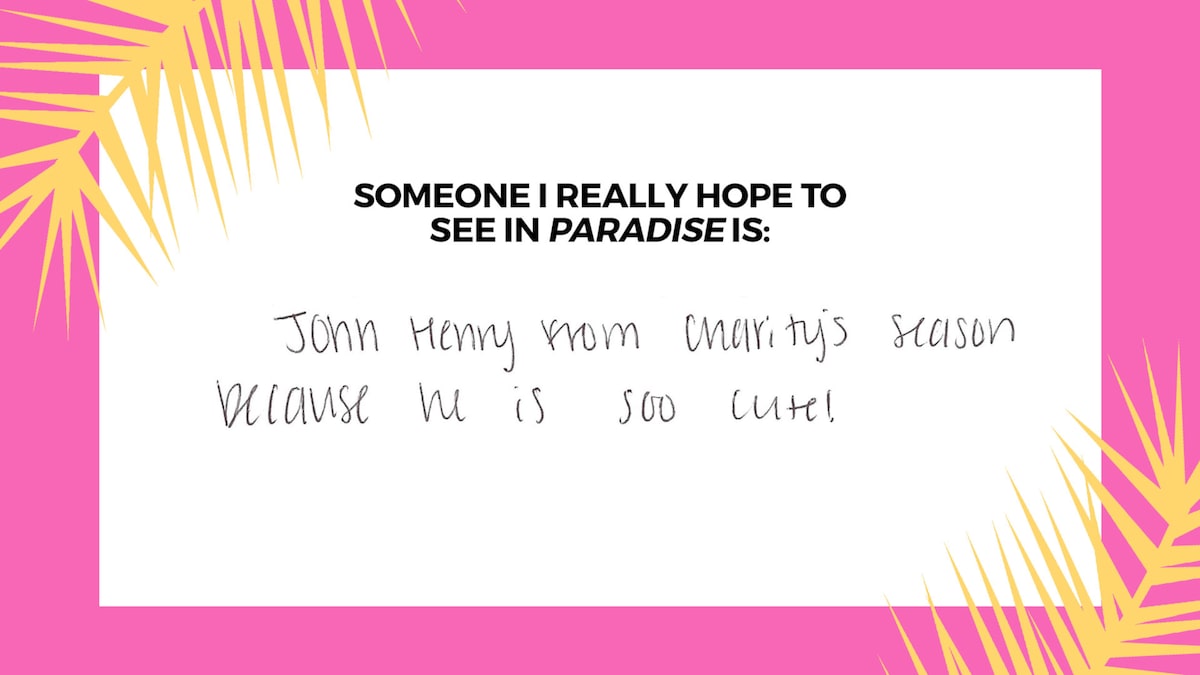 SOMEONE I REALLY HOPE TO
SEE IN PARADISE IS:
John Henry from Charity's season
because he is soo cute!